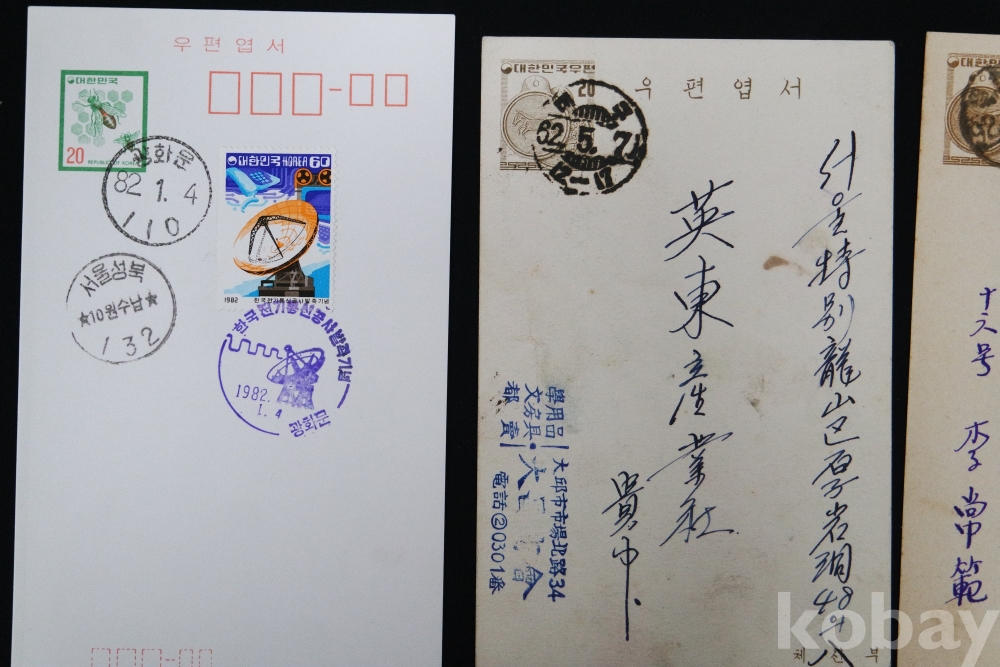 우편엽서
대한민국
20
REPUBLIC OF KOREA
광화문
82 1. 4
110
대한민국 KOREA 60
1982 한국전기통신공사발족기념
서울성북
★10원수납★
132
한국전기통신공사발족기념
1982.
1. 4
광화문
우편엽서
대한민국우편
20
62.5.7
서울特別龍山区厚岩洞48의
英東産業社
貴中
學用品
文房具
都賣
大邱市市場北路34
會
電話②0301番
체신부
대한민국
十六号 李尚範
kobay